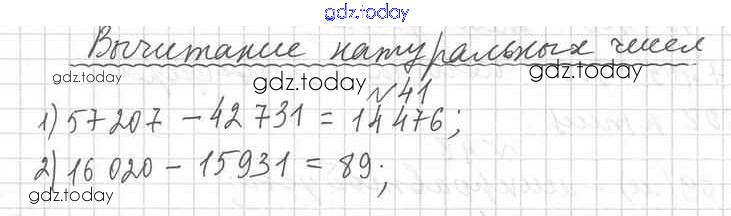 gdz.today
Вычитание натуральных чисел
gdz.today gdz.today gdz.today
№41
1) 57 207 - 42 731 = 14 476;
gdz.today
2) 16 020 - 15931 = 89;
gdz.today gdz.today